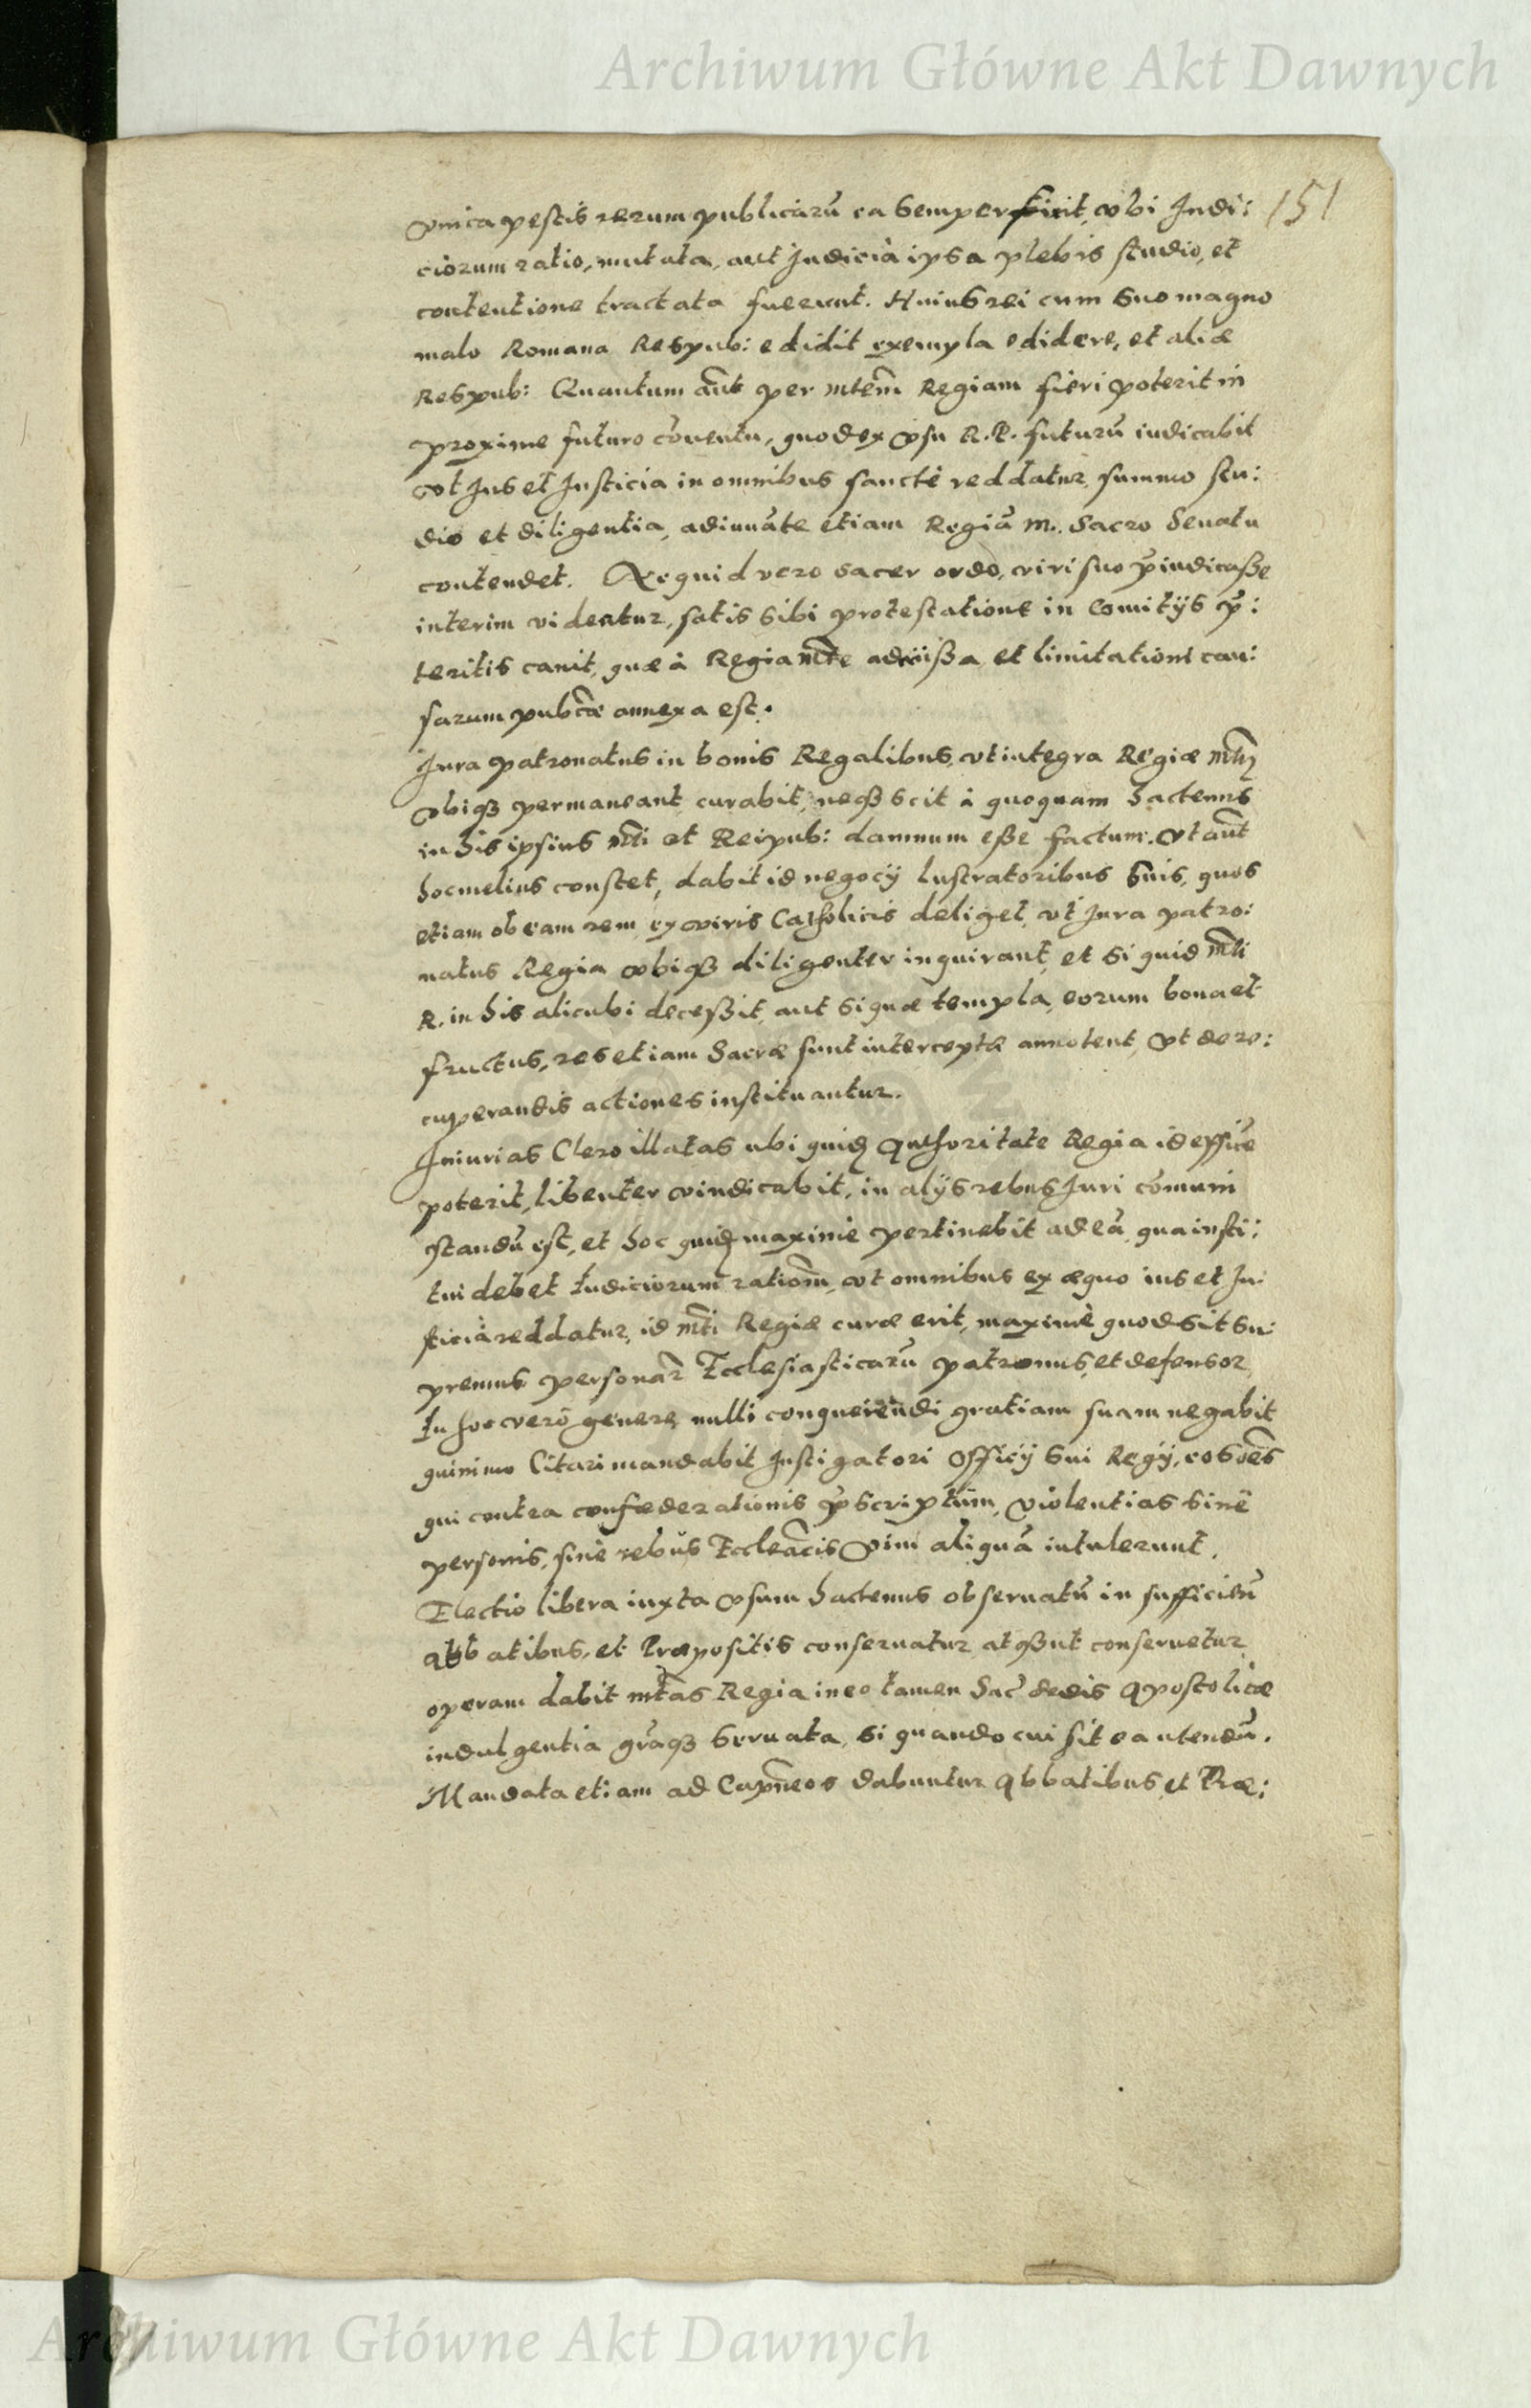 Archiwum Główne Akt Dawnych
151
vnica pestis rerum publicarũ ea semper fuit, vbi Judi:
ciorum ratio, mutata, aut Judicia ipsa plebis studio, et
contentione tractata fuerunt. Huius rei cum suo magno
malo Romana Respub: edidit exempla edidere, et aliæ
Respub: Quantum aũt per mtem̃ Regiam fieri poterit in
proxime futuro cõuentu, quod ex vsu R.P. futurũ iudicabit
vt Jus et Justicia in omnibus sanctè reddatur, summo stu:
dio et diligentia, adiuuãte etiam Regiã M. Sacro Senatu
contendet. Ne quid vero sacer ordo, viri suo p̃iudicasse
interim videatur, satis sibi protestatione in Comitijs p̃:
teritis cauit, quæ à Regia mt̃e admissa et limitationi cau:
sarum pub̃cæ annexa est.
Jura patronatus in bonis Regalibus, vt integra Regiæ mt̃i
vbiqȝ permaneant, curabit, neqȝ scit à quoquam hactenus
in his ipsius mt̃i et Reipub: damnum esse factum. Vt aũt
hoc melius constet, dabit id negocij Lustratoribus suis, quos
etiam ob eam rem ex viris Catholicis deliget, vt Jura patro:
natus Regia vbiqȝ diligenter inquirant, et si quid mt̃i
R. in his alicubi decessit, aut si quæ templa, eorum bona et
fructus, res etiam Sacræ sunt interceptæ annotent, vt de re:
cuperandis actiones instituantur.
Iniurias Clero illatas ubi quidẽ Authoritate Regia id efficẽ
poterit, libenter vindicabit, in alijs rebus Juri cõmuni
standũ est, et hoc quidẽ maxime pertinebit ad eã, qua insti:
tui debet Iudiciorum rationẽ, vt omnibus ex æquo ius et Ju:
sticia reddatur, id mt̃i Regiæ curæ erit, maximè quod sit su:
premus personar̃ Ecclesiasticarũ patronus, et defensor,
In hoc verò genere nulli conquerendi gratiam suam negabit
quinimo Citari mandabit Instigatori Officij sui Regij, eos oẽs
qui contra confæderationis p̃scriptum, violentias siuè
personis, siuè rebus Eccleãcis vim aliquã intulerunt.
Electio libera iuxta vsum hactenus obseruatũ in sufficiẽn
Abbatibus, et Præpositis conseruatur, atqȝ ut conseruetur
operam dabit mt̃as Regia in eo tamen Sac̃ Sedis Apostolicæ
indulgentia gr̃aqȝ seruata, si quando cui sit ea utendũ.
Mandata etiam ad Cap̃neos dabuntur Abbatibus, et Præ:
Archiwum Główne Akt Dawnych